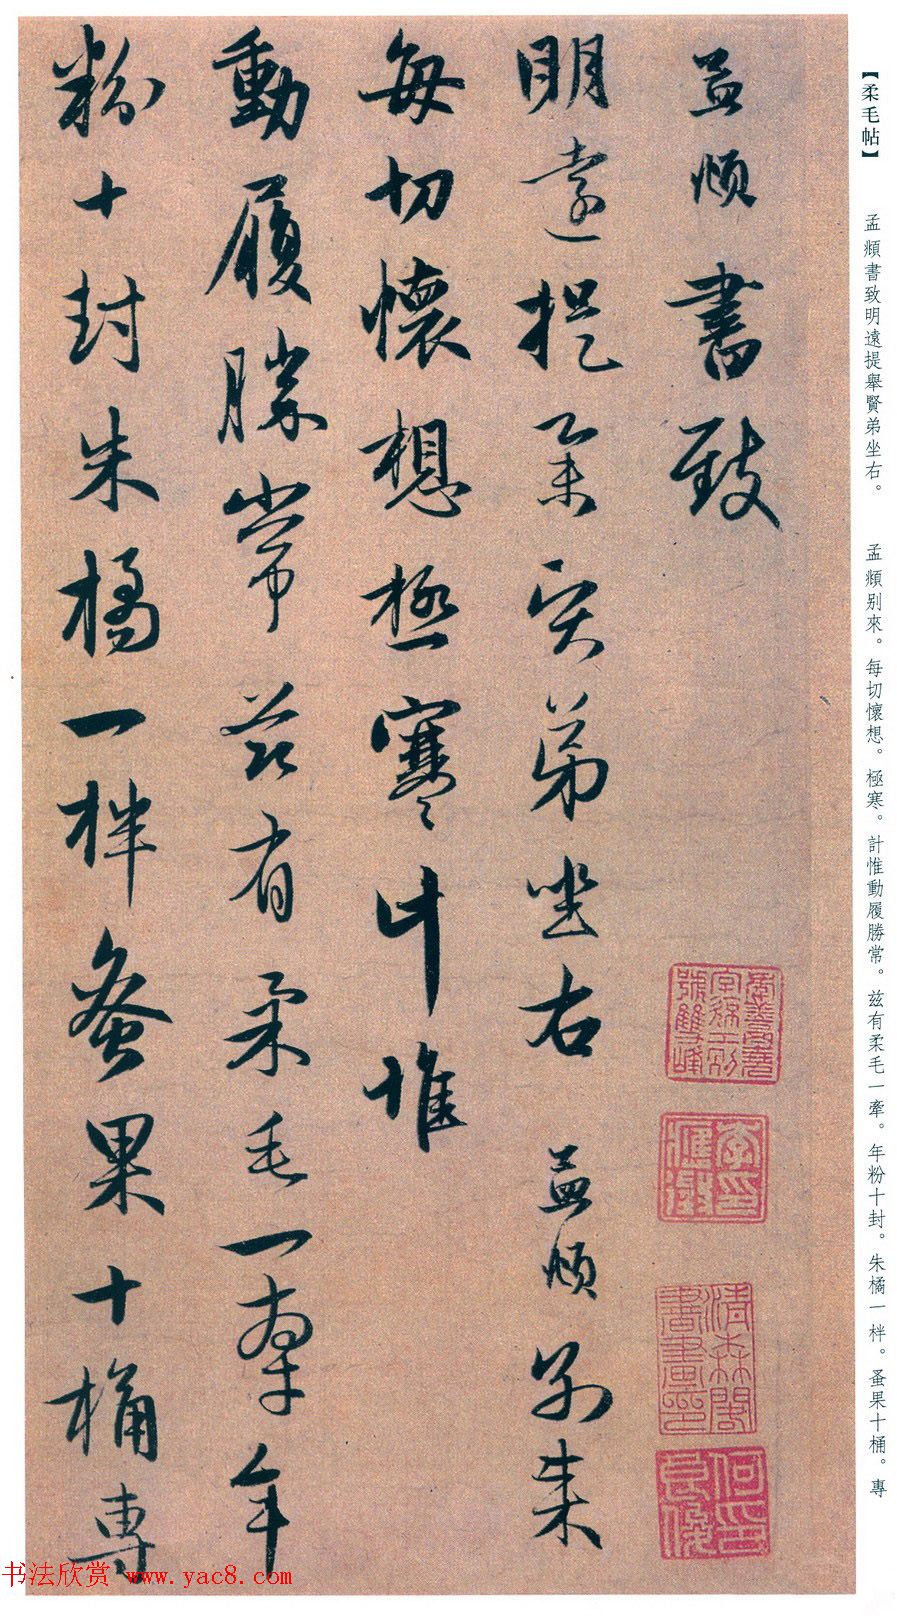 【柔毛帖】　孟頫書致明遠提舉賢弟坐右。　孟頫別來。每切懷想。極寒。計惟動履勝常。兹有柔毛一牽。年粉十封。朱橘一柈。蚤果十桶。專
孟頫書致
明遠提舉賢弟坐右 孟頫別來
每切懷想極寒計惟
動履勝常兹有柔毛一牽年
粉十封朱橘一柈蚤果十桶專
清森閣書畫印
書法欣赏 www.yac8.com